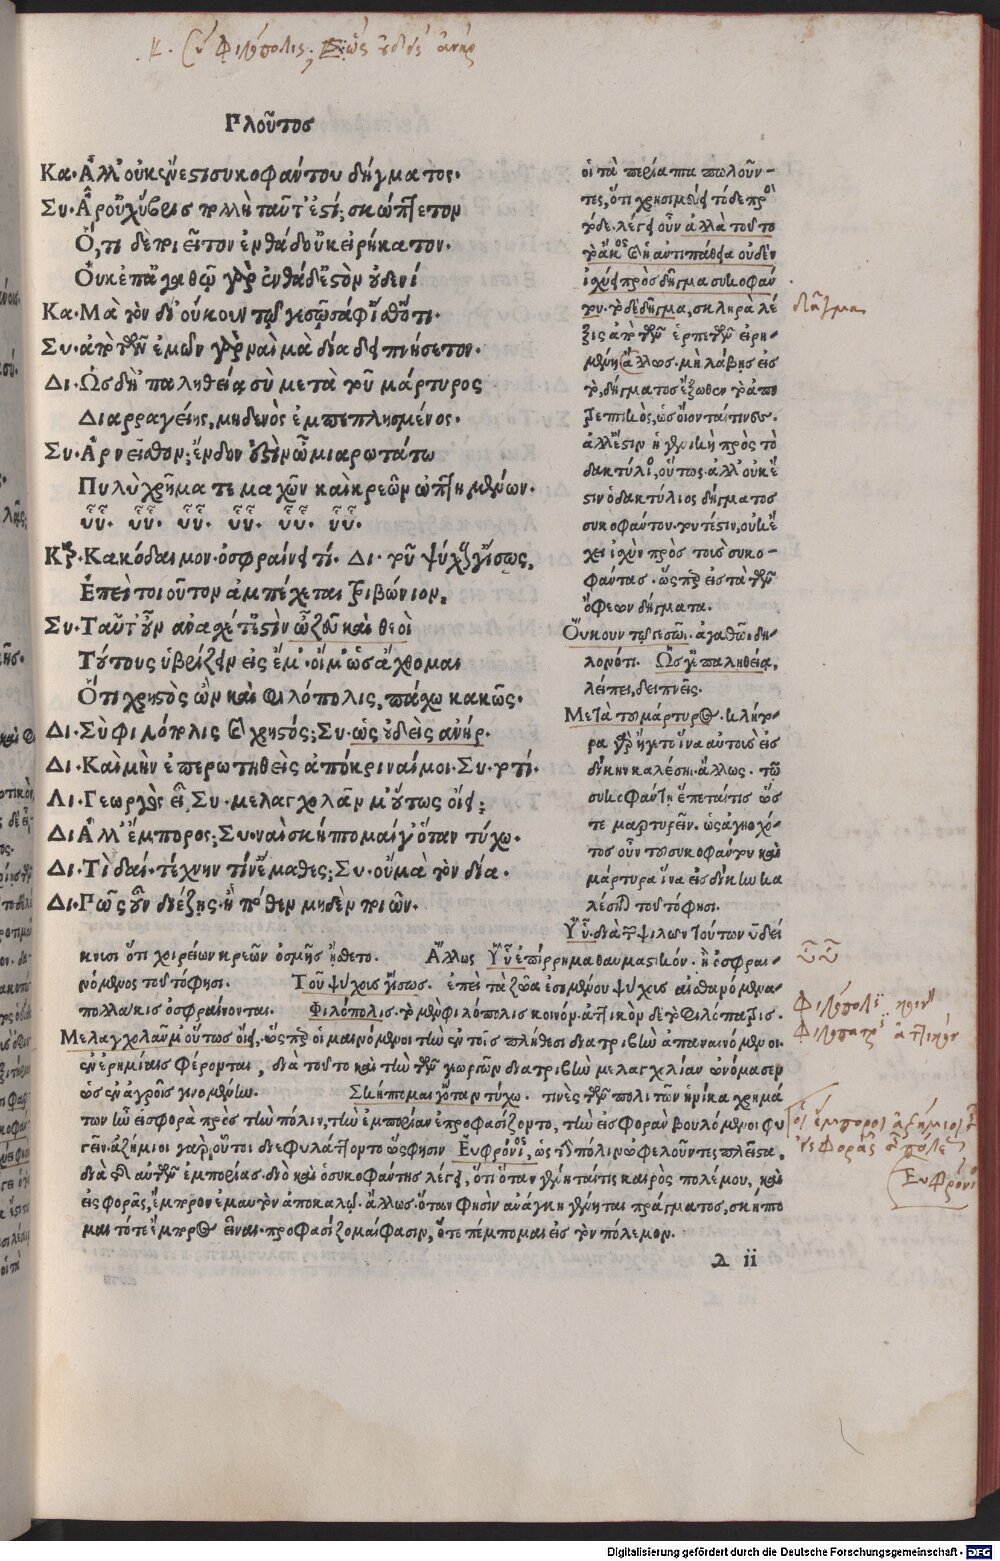 κ. Σὺ Φιλόπολις; Συ ὡς οὐδείς ἀνήρ
Πλοῦτος
Κα·Ἀλλ' οὐκ ἔνεστι συκοφάντου δήγματος·
Συ·Ἆρ' οὐχ ὕβρις πολλὴ ταῦτ' ἐστί; σκώπτετον
Ὅ, τι δὲ ποιεῖτον ἐνθάδ' οὐκ εἰρήκατον·
Οὐκ ἐπ' ἀγαθῷ γὰρ ἐνθάδ' ἐστὸν οὐδενί
Κα·Μὰ τὸν δί' οὔκουν τῷ γε σῷ σάφ' ἴσθ' ὅτι·
Συ·ἀπὸ τῶν ἐμῶν γὰρ ναὶ μὰ δία δειπνήσετον·
Δι·Ὡς δὴ 'π' ἀληθείᾳ σὺ μετὰ τοῦ μάρτυρος
Διαρραγείης, μηδενὸς ἐμπεπλησμένος·
Συ·Ἀρνεῖσθον; ἔνδον ἐστὶν ὦ μιαρωτάτω
Πολὺ χρῆμα τεμαχῶν καὶ κρεῶν ὠπτημένων·
ὗὗ· ὗὗ· ὗὗ· ὗὗ· ὗὗ· ὗὗ·
Κρ·Κακόδαιμον· ὀσφραίνει τί· Δι· τοῦ ψύχους γ' ἴσως,
Ἐπεὶ τοιοῦτον ἀμπέχεται τριβώνιον,
Συ·Ταῦτ' οὖν ἀνασχέτ' ἐστὶν ὦ ζεῦ καὶ θεοὶ
Τούτους ὑβρίζειν εἰς ἔμ'· οἴμ' ὡς ἄχθομαι
Ὅτι χρηστὸς ὢν καὶ φιλόπολις, πάσχω κακῶς·
Δι·Σὺ φιλόπολις καὶ χρηστός; Συ·ὡς οὐδεὶς ἀνήρ·
Δι·Καὶ μὴν ἐπερωτηθεὶς ἀπόκριναί μοι·Συ·τὸ τί·
Δι·Γεωργὸς εἶ, Συ·μελαγχολᾶν μ' οὕτως οἴει;
Δι Ἀλλ' ἔμπορος; Συ·ναὶ σκήπτομαί γ' ὅταν τύχω·
Δι·Τί δαί· τέχνην τίν' ἔμαθες; Συ·οὐ μὰ τὸν δία·
Δι·Πῶς οὖν διέζης· ἢ πόθεν μηδὲν ποιῶν·
οἱ τὰ περίαπτα πωλοῦν-
τες, ὅτι χρησιμεύει τόδε πρὸς
τόδε· λέγει οὖν ἀλλὰ τοῦτο
τὸ ἄκος καὶ ἡ ἀντιπάθεια οὐδὲν
ἰσχύει πρὸς δῆγμα συκοφάν
του· τὸ δὲ δῆγμα, σκληρὰ λέ
ξις ἀπὸ τῶν ἑρπετῶν εἰρη-
μένη ἄλλως· μὴ λάβῃς εἰς
τὸ, δήγματος ἔξωθεν τὸ ἀπο
τρεπτικὸς, ὡς οἴονταί τινες·
ἀλλ' ἔστιν ἡ γενικὴ πρὸς τὸ
δακτύλιος, οὕτως· ἀλλ' οὐκ ἔ
στιν ὁ δακτύλιος δήγματος
συκοφάντου· τουτέστιν, οὐκ ἔ
χει ἰσχὺν πρὸς τοὺς συκο-
φάντας· ὥσπερ εἰς τὰ τῶν
ὄφεων δήγματα·
Οὔκουν τῷ γε σῷ· ἀγαθῷ δη-
λονότι· Ὡς δὴ 'π' ἀληθείᾳ,
λείπει, δειπνεῖς·
Μετὰ τοῦ μάρτυρος· κλήτο-
ρα γὰρ ἦγε τοῦτο ἵνα αὐτοὺς εἰς
δίκην καλέσῃ· ἄλλως· τῷ
συκοφάντῃ ἕπεταί τις ὥσ
τε μαρτυρεῖν· ὡς ἀγχο-
τος οὖν τοῦ συκοφάντου καὶ
μάρτυρα ἵνα εἰς δίκην κα
λέσῃ τοῦτό φησι·
Ὗὗ· διὰ τὸ ψιλῶν τούτων ὖ δεί
κνυσι ὅτι χοιρείων κρεῶν ὀσμῆς ᾔσθετο· Ἄλλως Ὗὗ ἐπίρρημα θαυμαστικόν· ἢ ὀσφραι-
νόμενος τοῦτό φησι· Τοῦ ψύχους γ' ἴσως· ἐπεὶ τὰ ζῷα ἐσομένου ψύχους αἰσθανόμενα·
πολλάκις ὀσφραίνονται· Φιλόπολις· τὸ μὲν φιλόπολις κοινόν· ἀττικὸν δὲ τὸ φιλόπατρις·
Μελαγχολᾶν μ' οὕτως οἴει, ὥσπερ οἱ μαινόμενοι τὴν ἐν τοῖς πλήθεσι διατριβὴν ἀπαναινόμενοι
ἐν ἐρημίαις φέρονται, διὰ τοῦτο καὶ τὴν τῶν γεωργῶν διατριβὴν μελαγχολίαν ὠνόμασεν
ὡς ἐν ἀγροῖς γινομένην· Σκήπτομαί γ' ὅταν τύχω· τινὲς τῶν πολιτῶν ἡνίκα χρημά
των ἦν εἰσφορὰ πρὸς τὴν πόλιν, τὴν ἐμπορίαν ἐπροφασίζοντο, τὴν εἰσφορὰν βουλόμενοι φυ
γεῖν· ἀζήμιοι γὰρ οὗτοι διεφυλάττοντο ὥς φησιν Εὐφρόνιος, ὡς τὴν πόλιν ὠφελοῦντες πλεῖστα,
διὰ τῆς αὐτῶν ἐμπορίας· διὸ καὶ ὁ συκοφάντης λέγει, ὅτι ὅταν γένηταί τις καιρὸς πολέμου, καὶ
εἰσφορᾶς, ἔμπορον ἐμαυτὸν ἀποκαλῶ· ἄλλως· ὅταν φησὶν ἀνάγκη γένηται πράγματος, σκήπτο
μαι τότε ἔμπορος εἶναι· προφασίζομαί φασιν, ὅτε πέμπομαι εἰς τὸν πόλεμον·
Δ ii
δῆγμα
ὗὗ
Φιλόπολις κοινὸν
Φιλόπατρις ἀττικὸν
οἱ ἔμποροι ἀζήμιοι
εἰσφορᾶς
Εὐφρόνι
Digitalisierung gefördert durch die Deutsche Forschungsgemeinschaft - DFG